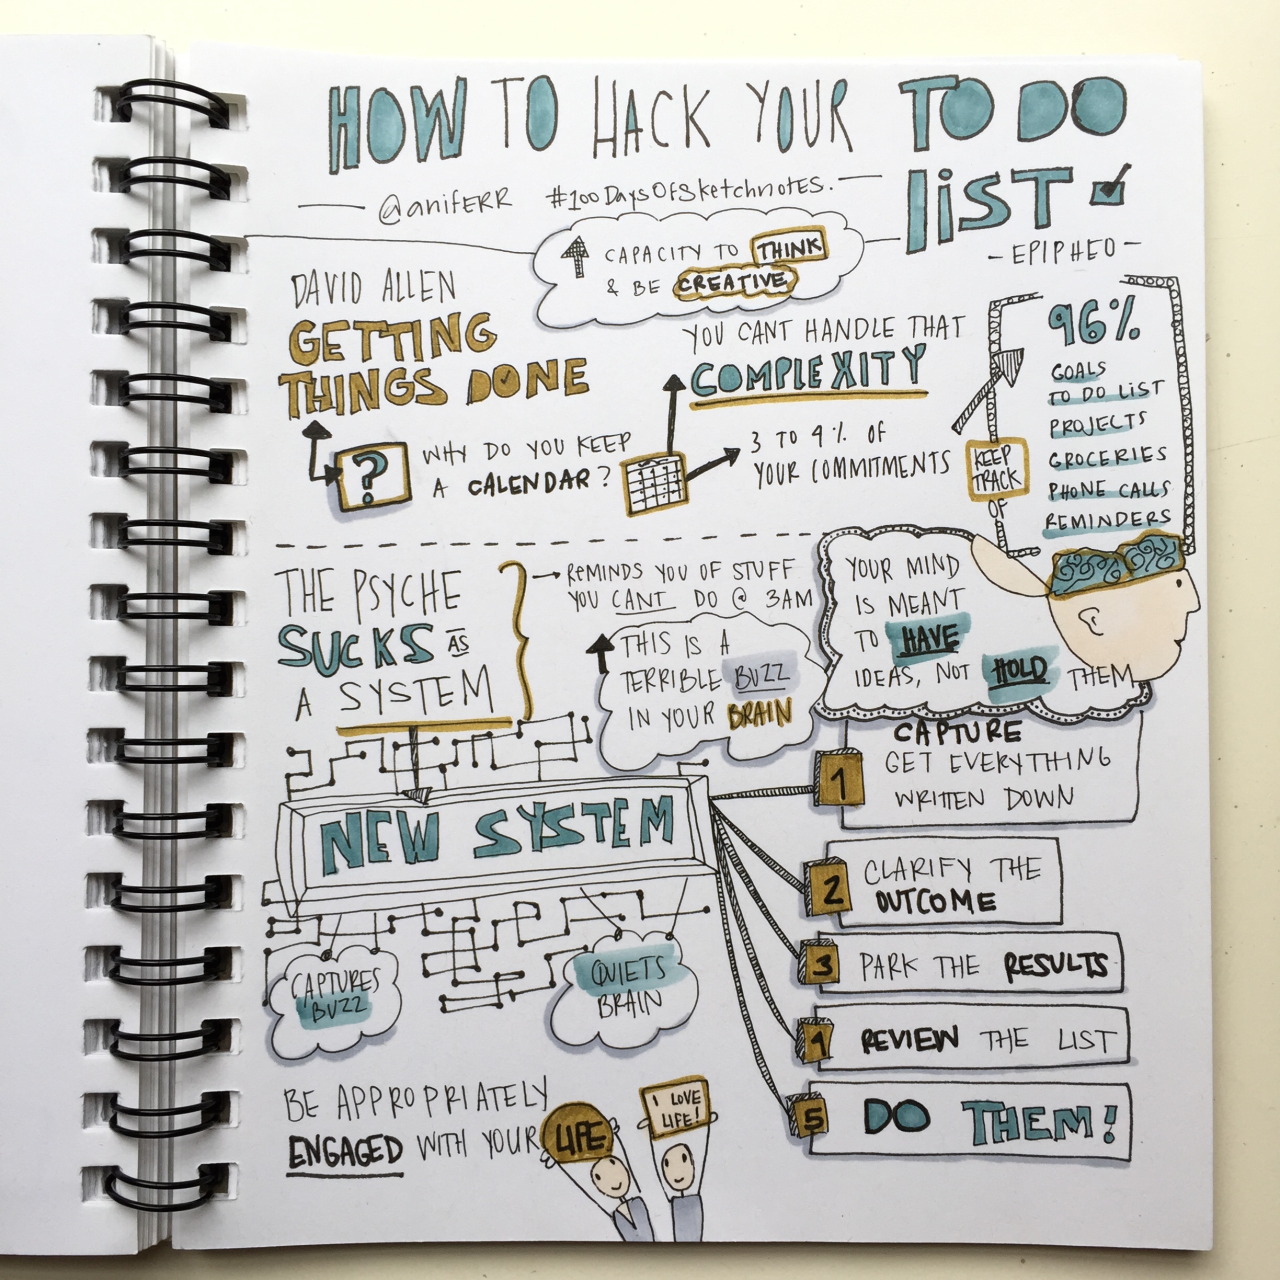 HOW TO HACK YOUR TO DO
LIST
@aniFERR #100DaysOfSketchnotes.
- EPIPHEO -
CAPACITY TO THINK
& BE CREATIVE
DAVID ALLEN
GETTING
THINGS DONE
?
WHY DO YOU KEEP
A CALENDAR?
YOU CANT HANDLE THAT
COMPLEXITY
3 TO 4 % OF
YOUR COMMITMENTS
KEEP
TRACK
OF
96%
GOALS
TO DO LIST
PROJECTS
GROCERIES
PHONE CALLS
REMINDERS
THE PSYCHE
SUCKS AS
A SYSTEM
REMINDS YOU OF STUFF
YOU CANT DO @ 3AM
THIS IS A
TERRIBLE BUZZ
IN YOUR BRAIN
YOUR MIND
IS MEANT
TO HAVE
IDEAS, NOT HOLD THEM
NEW SYSTEM
CAPTURES
BUZZ
QUIETS
BRAIN
CAPTURE
1 GET EVERYTHING
WRITTEN DOWN
2 CLARIFY THE
OUTCOME
3 PARK THE RESULTS
4 REVIEW THE LIST
5 DO THEM!
BE APPROPRIATELY
ENGAGED WITH YOUR LIFE
I LOVE
LIFE!